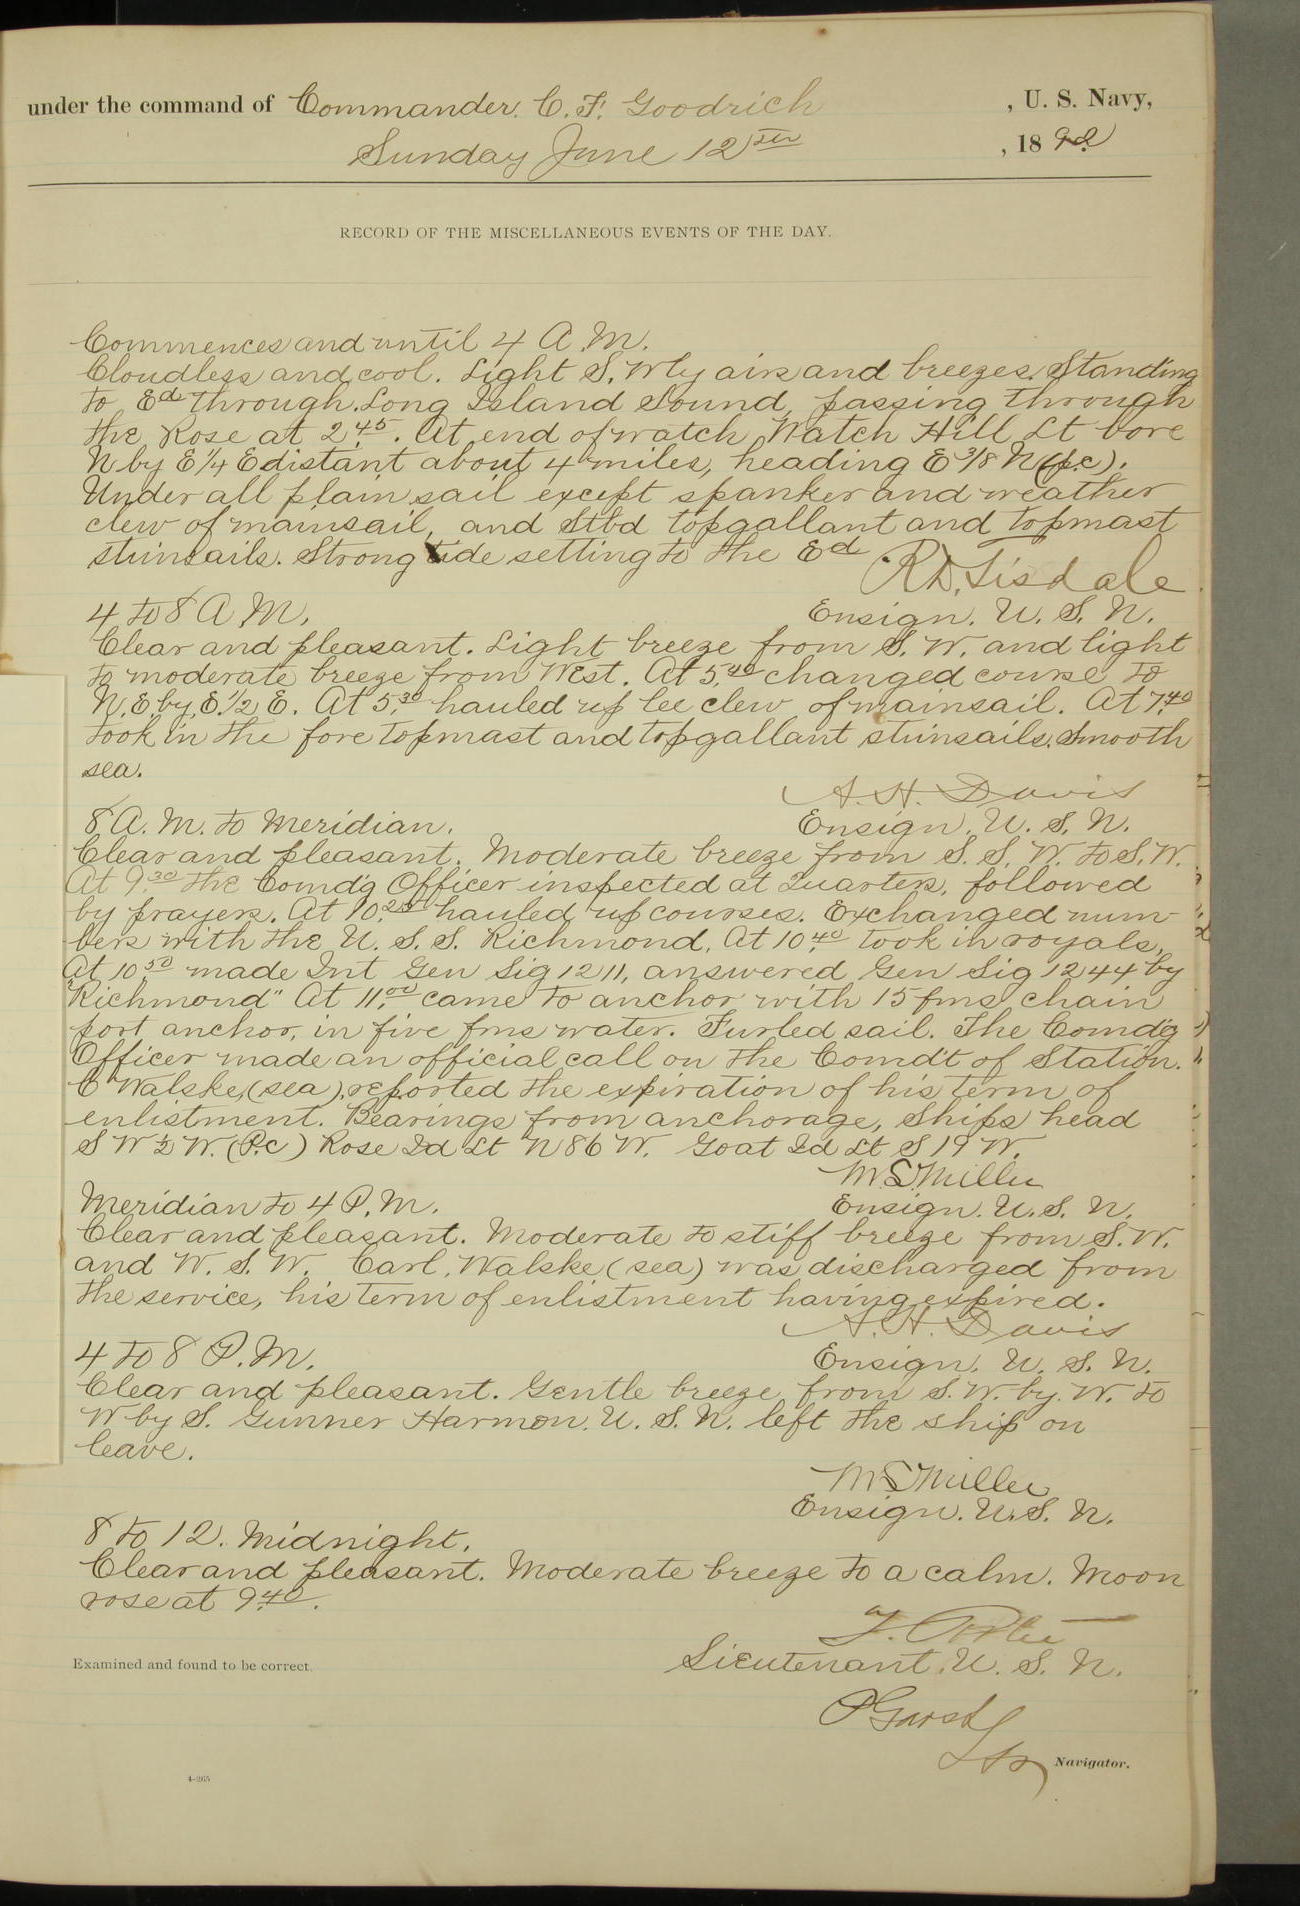 under the command of Commander. C. F. Goodrich , U. S. Navy,
Sunday June 12th , 1892
RECORD OF THE MISCELLANEOUS EVENTS OF THE DAY.
Commences and until 4 A.M.
Cloudless and cool. Light S. Wly airs and breezes. Standing
to Ed through Long Island Sound, passing through
the Rose at 2.45. At end of watch Watch Hill Lt bore
N by E 1/4 E distant about 4 miles, heading E 3/8 N (p.c).
Under all plain sail except spanker and weather
clew of mainsail, and Stbd topgallant and topmast
stunsails. Strong tide setting to the Ed
R.D. Tisdale
4 to 8 A M. Ensign. U. S. N.
Clear and pleasant. Light breeze from S. W. and light
to moderate breeze from West. At 5.40 changed course to
N.E. by E. 1/2 E. At 5.30 hauled up lee clew of mainsail. At 7.40
took in the fore topmast and topgallant stunsails. Smooth
sea.
A. H. Davis
8 A. M. to Meridian. Ensign. U. S. N.
Clear and pleasant. Moderate breeze from S. S. W. to S. W.
At 9.30 the Comd'g Officer inspected at Quarters, followed
by prayers. At 10.25 hauled up courses. Exchanged num-
bers with the U. S. S. Richmond. At 10.40 took in royals,
At 10.50 made Int Gen Sig 1211, answered Gen Sig 1244 by
"Richmond" At 11.00 came to anchor with 15 fms chain
port anchor, in five fms water. Furled sail. The Comd'g
Officer made an official call on the Comd't of Station.
C Walske, (sea), reported the expiration of his term of
enlistment. Bearings from anchorage, Ships head
S W 1/2 W. (P.c) Rose Id Lt N 86 W. Goat Id Lt S 19 W.
M S Miller
Meridian to 4 P. M. Ensign. U. S. N.
Clear and pleasant. Moderate to stiff breeze from S. W.
and W. S. W. Carl. Walske (sea) was discharged from
the service, his term of enlistment having expired.
A. H. Davis
4 to 8 P. M. Ensign. U. S. N.
Clear and pleasant. Gentle breeze from S. W. by. W. to
W by S. Gunner Harmon. U. S. N. left the ship on
leave.
M S Miller
Ensign. U. S. N.
8 to 12. Midnight.
Clear and pleasant. Moderate breeze to a calm. Moon
rose at 9.40.
Lieutenant. U. S. N.
Examined and found to be correct.
P Garst
Navigator.
4-265